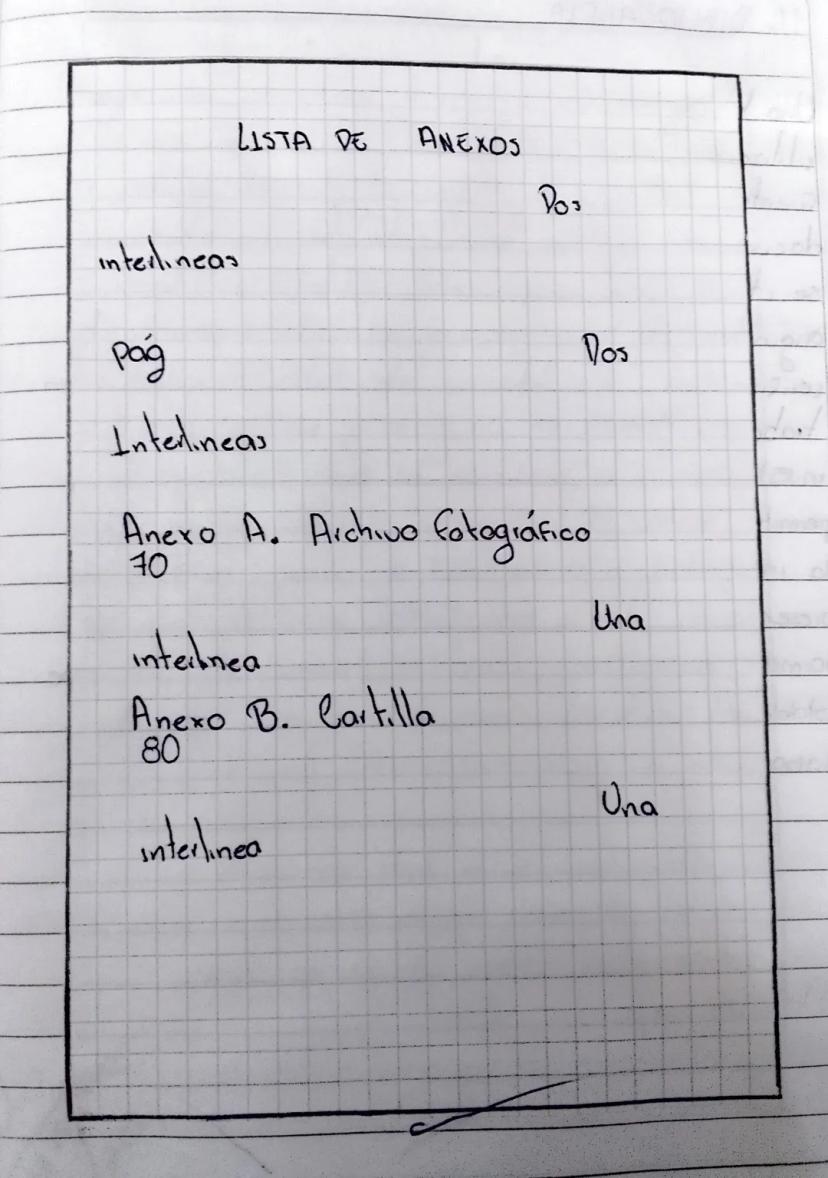 LISTA DE ANEXOS
Dos
interlineas
pág Dos
Interlineas
Anexo A. Archivo fotográfico
70
Una
interlinea
Anexo B. Cartilla
80
Una
interlinea